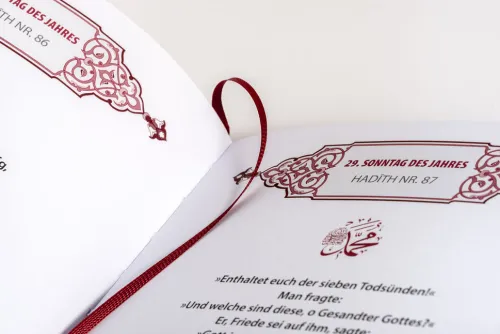 TAG DES JAHRES
HADÎTH NR. 86
29. SONNTAG DES JAHRES
HADÎTH NR. 87
»Enthaltet euch der sieben Todsünden!«
Man fragte:
»Und welche sind diese, o Gesandter Gottes?«
Er, Friede sei auf ihm, sagte: